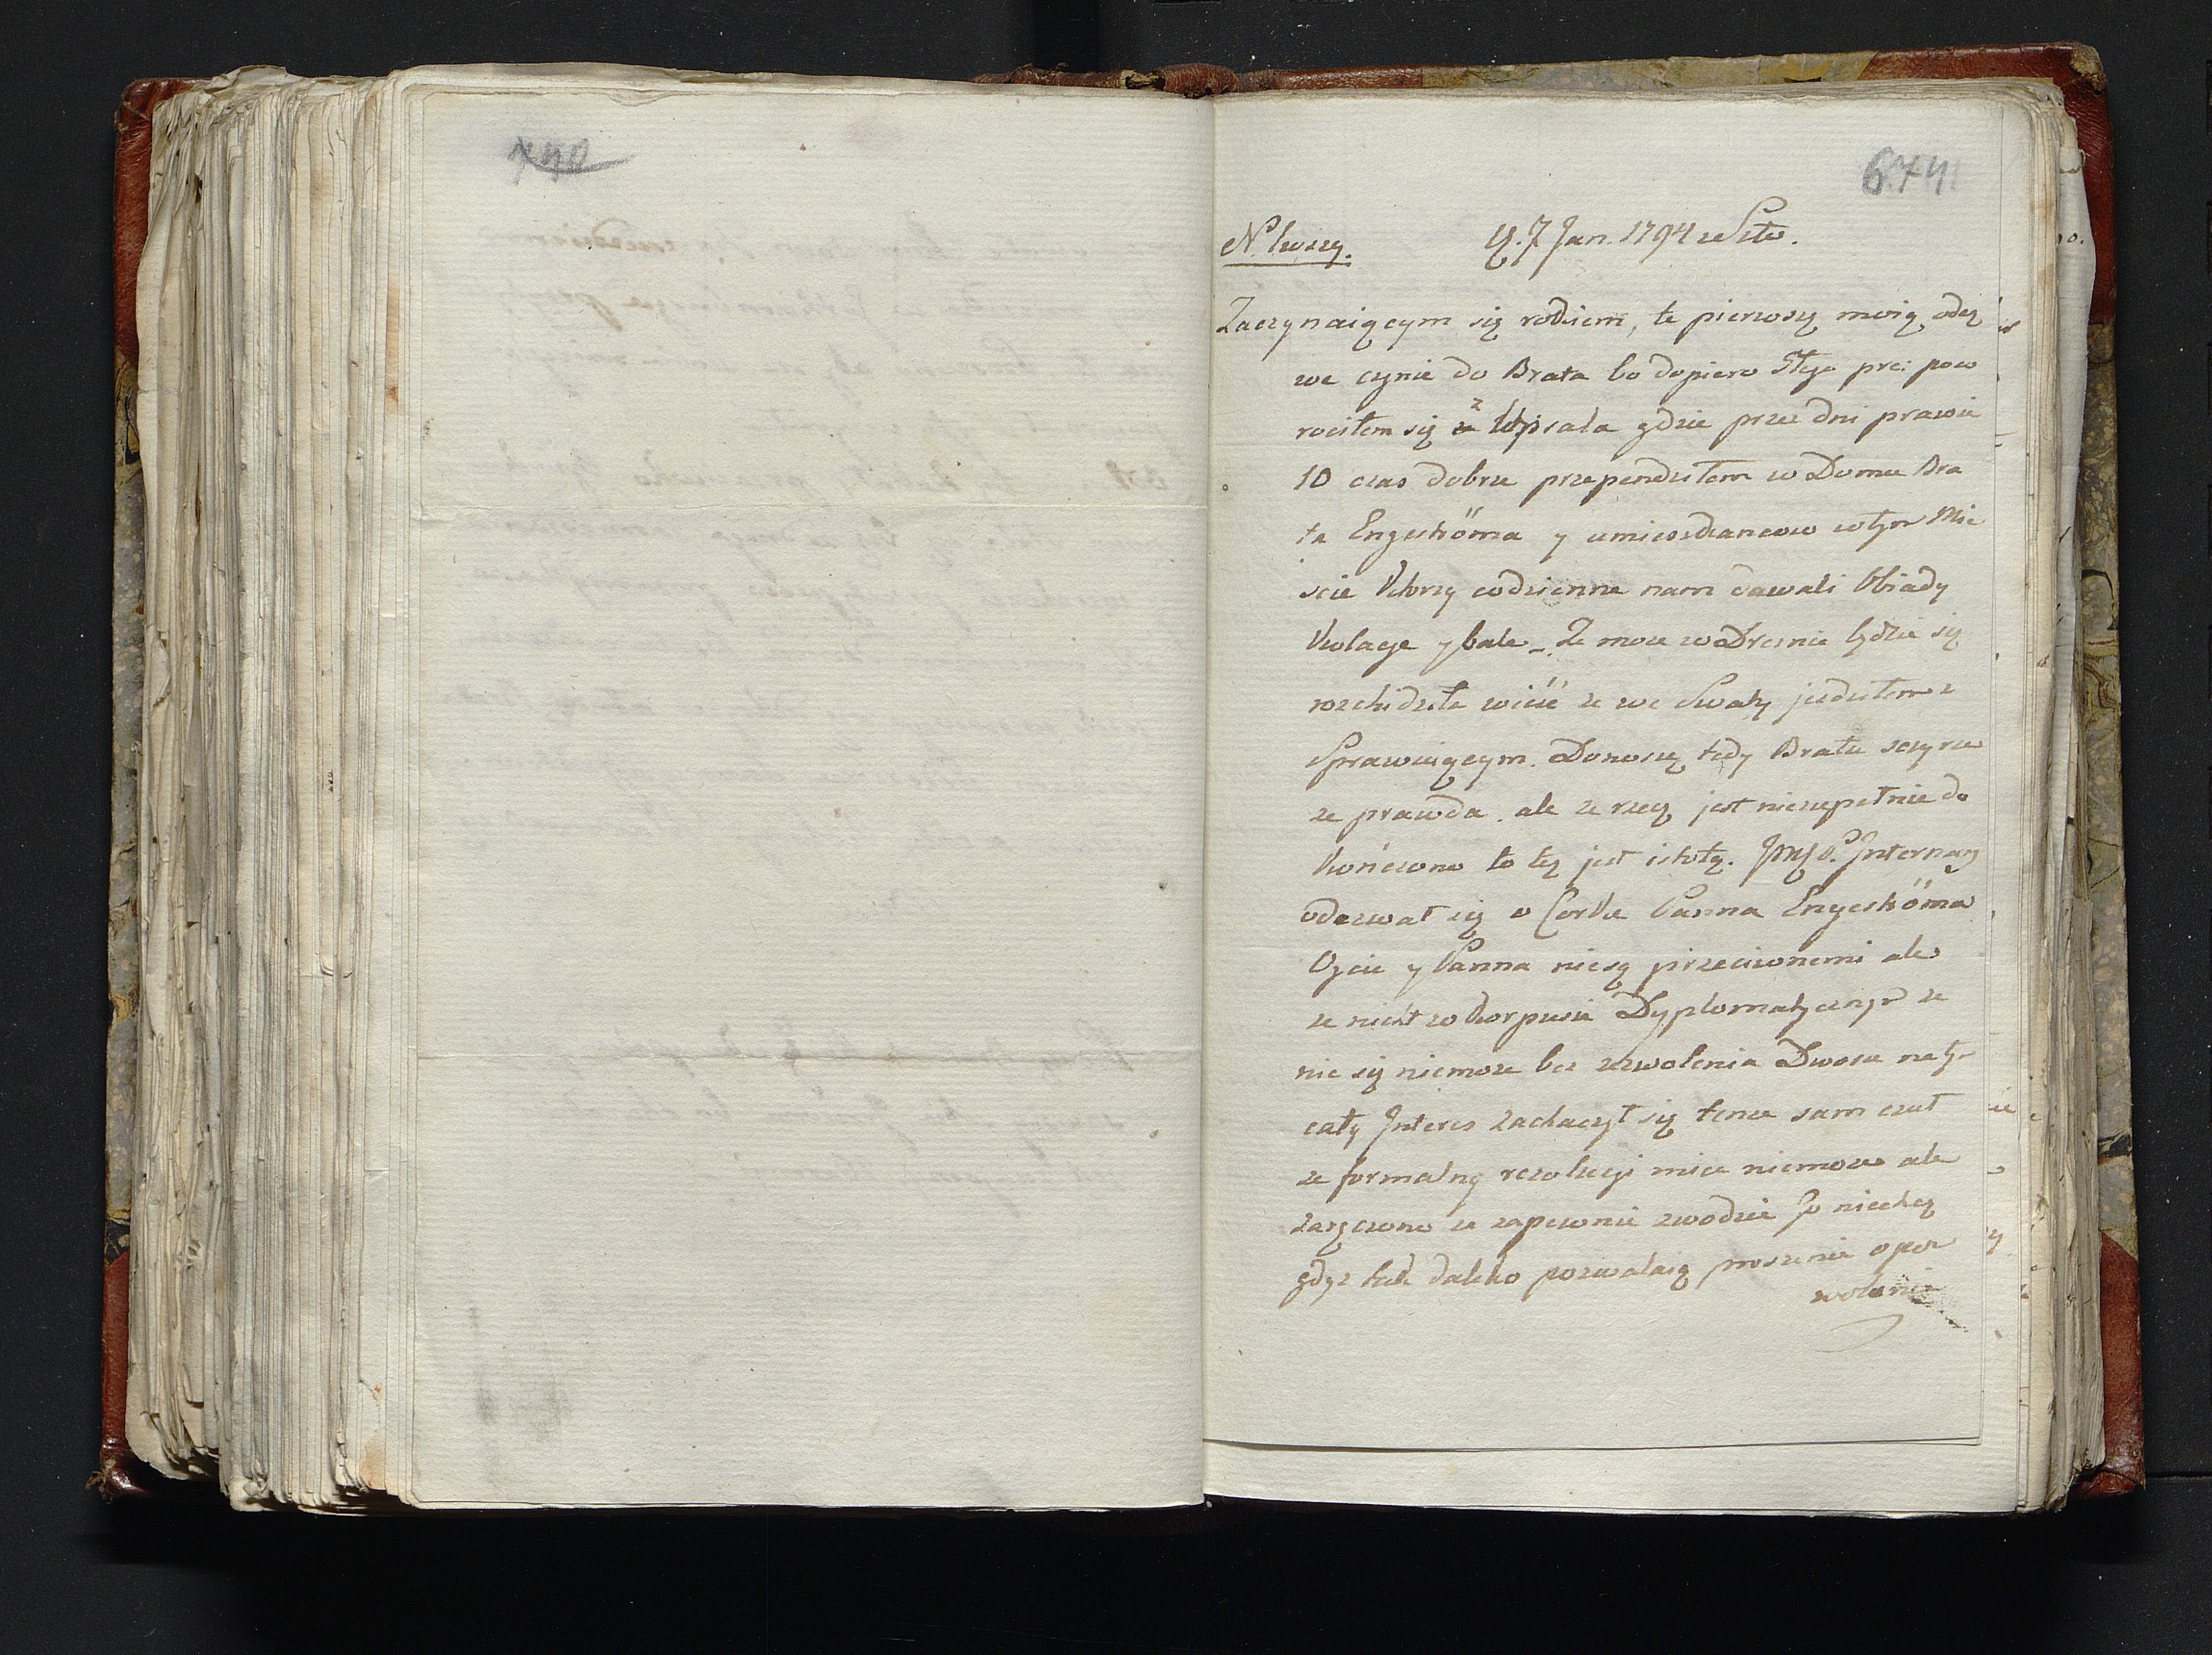 740
674
N. 1wszy. d. 7 Jan. 1794 ze Szto.
Zaczynaiącym się rodziem, te pierwszą moię odez
we czynie do Brata bo dopiero 5tego pre: pow
rociłem się z Upsala gdzie prze dni prawie
10 czas dobrze przependzełem w Domu Bra
ta Engeströma y umieszczancow w tym Mie
scie Ktorzy codzienne nam dawali Obiady
Kolacye y bale_ Ze moze w Dreznie będzie się
wieść ze we Swaty jezdzełem z
Sprawuiącym. Donoszę tedy Bratu sczyrze
ze prawda. ale ze rzecz jest niezupełnie do
kończona to tez jest istotą. JMP. Internący
odezwał się o Corke Panna Engeströma
Oycie y Panna niesą przeciwnemi ale
ze nicht w Korpusie Dyplomatycznym ze
nie się niemoze bez zezwolenia Dworu na tym
cały Interes zachaczył się tenze sam czuł
ze formalny rezolucyi miec niemoze ale
zaręczono ze zapewnie zwodzić Jo niechcą
gdyz tak daleko pozwalaią proszenie o poz
wolenie